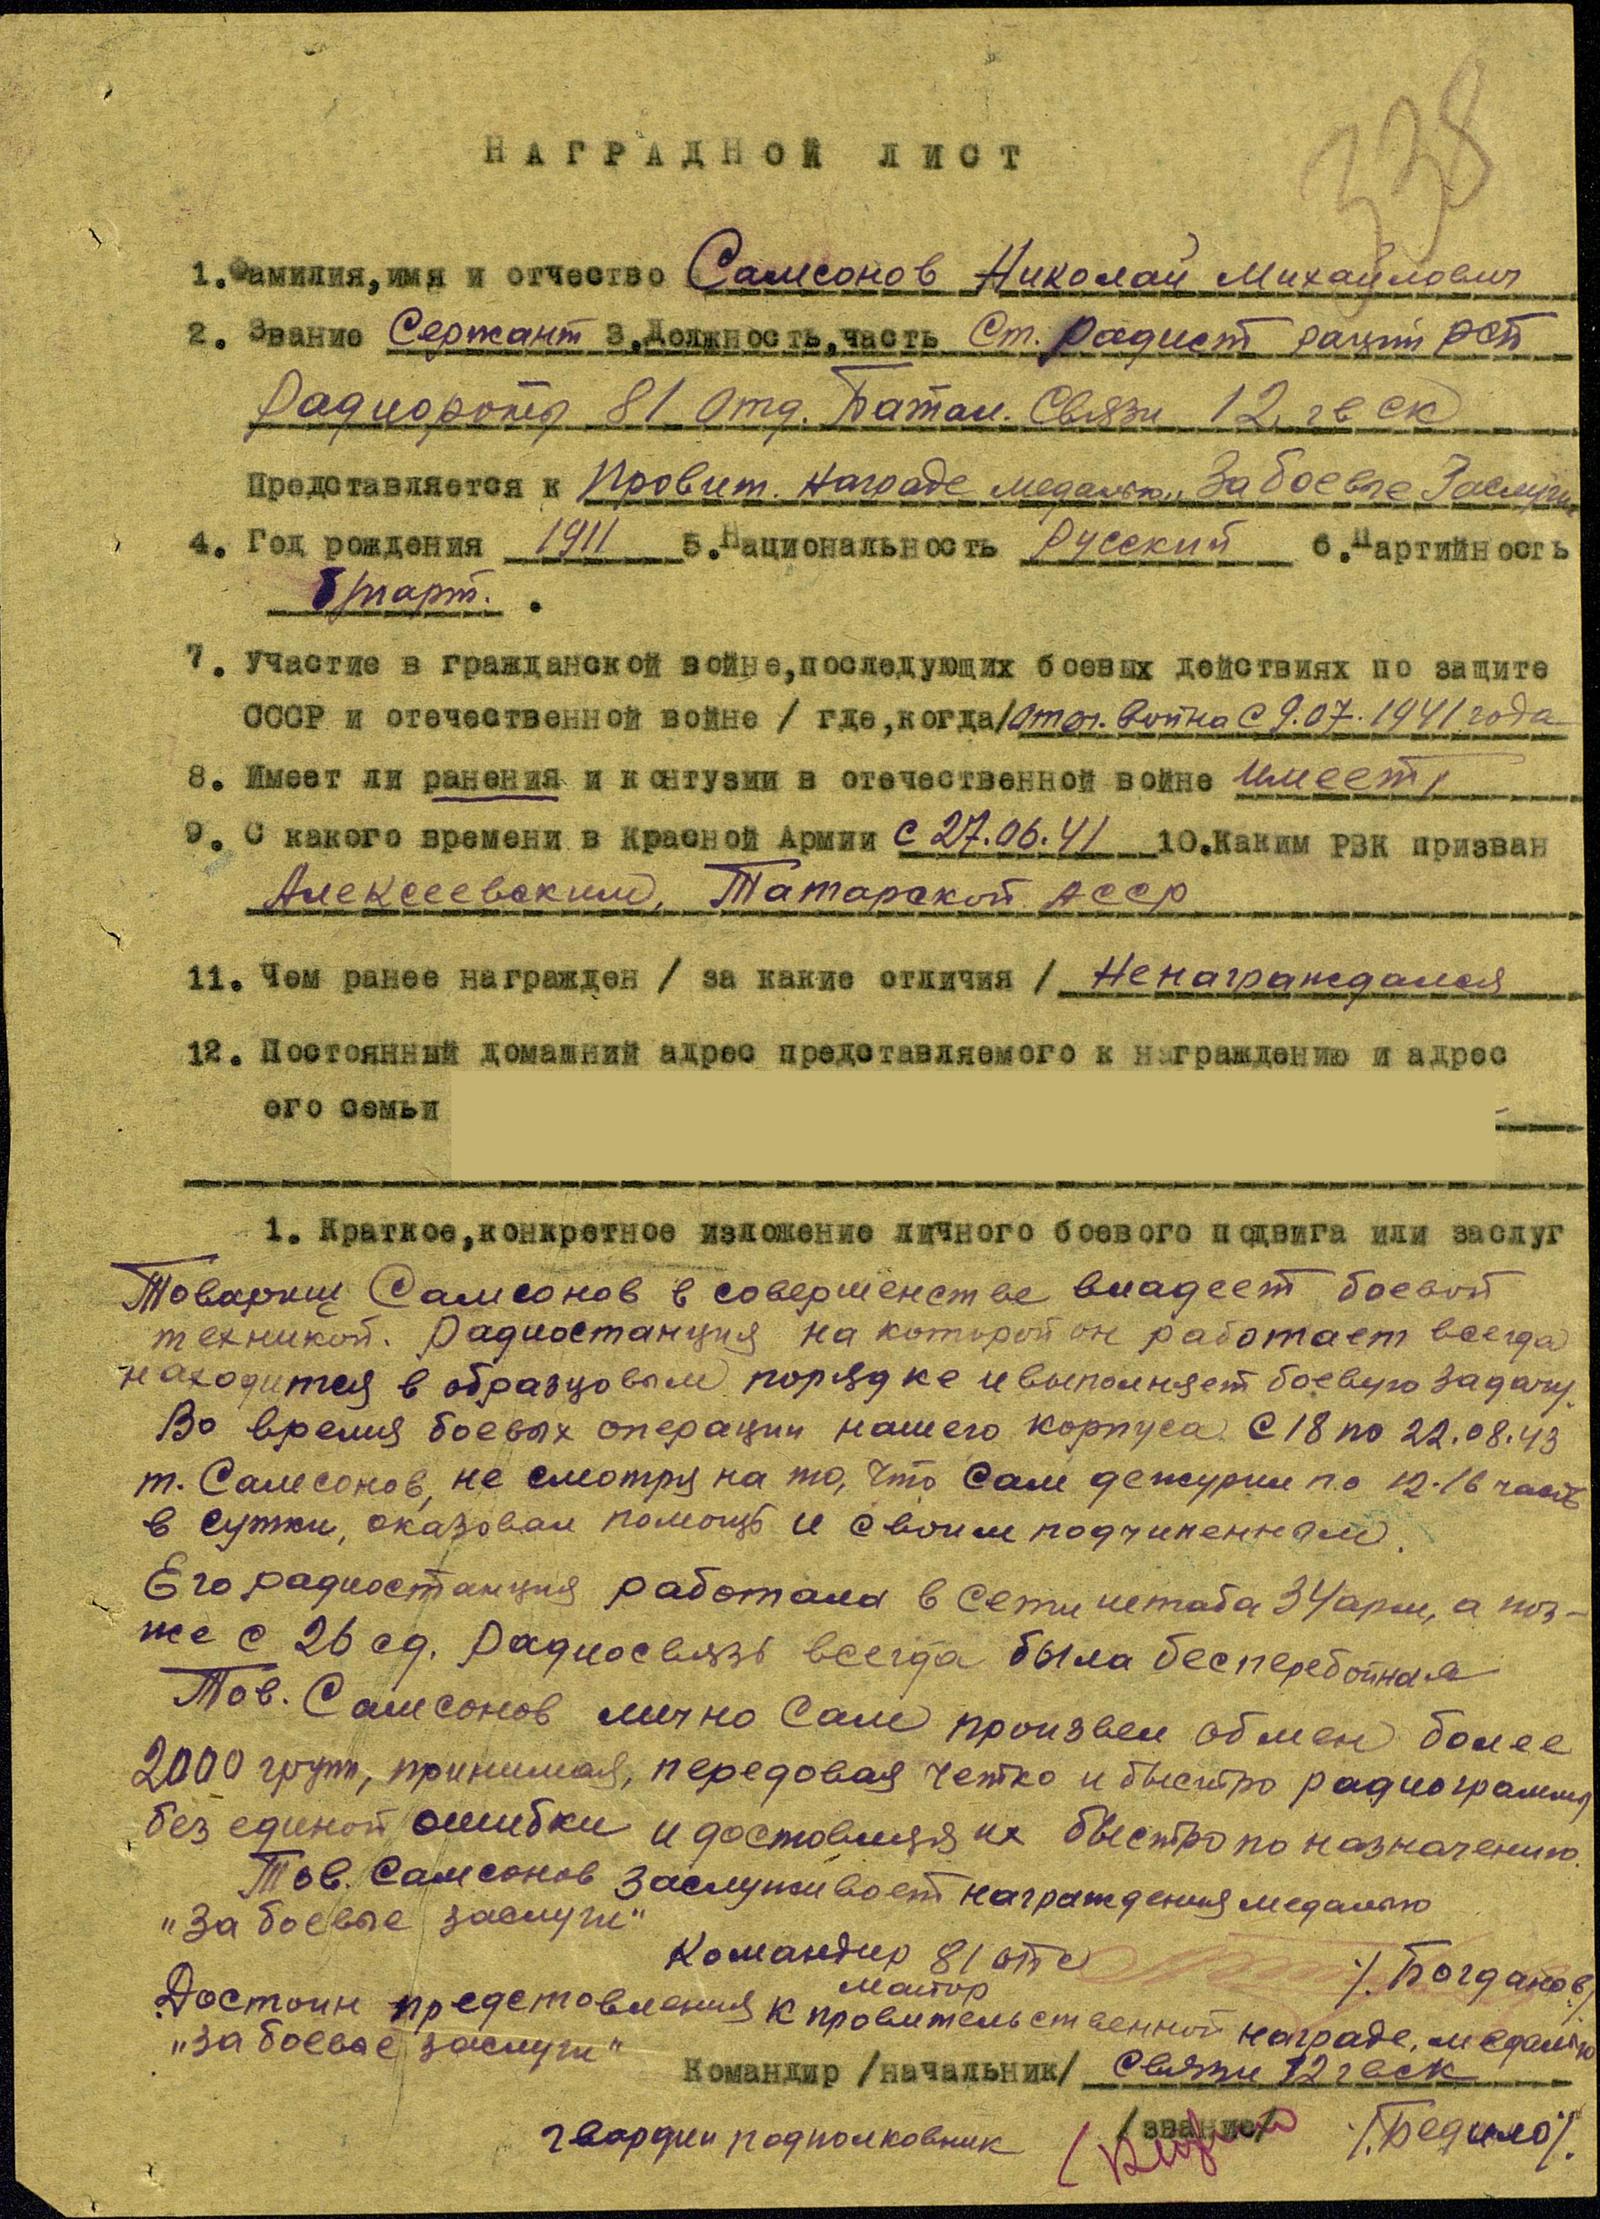 338
НАГРАДНОЙ ЛИСТ
1. Фамилия, имя и отчество Самсонов Николай Михайлович
2. Звание Сержант 3. Должность, часть Ст. радист рации РСБ
Радиороты 81 Отд. Батал. Связи 12 гв ск
Представляется к Правит. награде медалью „За боевые Заслуги"
4. Год рождения 1911 5. Национальность Русский 6. Партийность
б/парт.
7. Участие в гражданской войне, последующих боевых действиях по защите
СССР и отечественной войне / где, когда/ Отеч. война с 9.07.1941 года
8. Имеет ли ранения и контузии в отечественной войне имеет
9. С какого времени в Красной Армии с 27.06.41 10. Каким РВК призван
Алексеевским, Татарской АССР
11. Чем ранее награжден / за какие отличия / Не награждался
12. Постоянный домашний адрес представляемого к награждению и адрес
его семьи
1. Краткое, конкретное изложение личного боевого подвига или заслуг
Товарищ Самсонов в совершенстве владеет боевой
техникой. Радиостанция на которой он работает всегда
находится в образцовым порядке и выполняет боевую задачу.
Во время боевых операции нашего корпуса с 18 по 22.08.43
т. Самсонов, не смотря на то, что сам дежурил по 12-16 часов
в сутки, оказовал помощь и своим подчиненным.
Его радиостанция работала в сети штаба 34 арм, а поз-
же с 26 сд. Радиосвязь всегда была бесперебойная
Тов. Самсонов лично сам произвел обмен более
2000 групп, принимая, передовая четко и быстро радиограммы
без единой ошибки и доставляя их быстро по назначению.
Тов. Самсонов заслуживает награждения медалью
„За боевые заслуги"
Командир 81 отд
майор /. Богданов/
Достоин представления к правительственной награде, медалью
„За боевые заслуги"
Командир /начальник/ связи 12 гвск
/звание/
гвардии подполковник /. Бедило/.